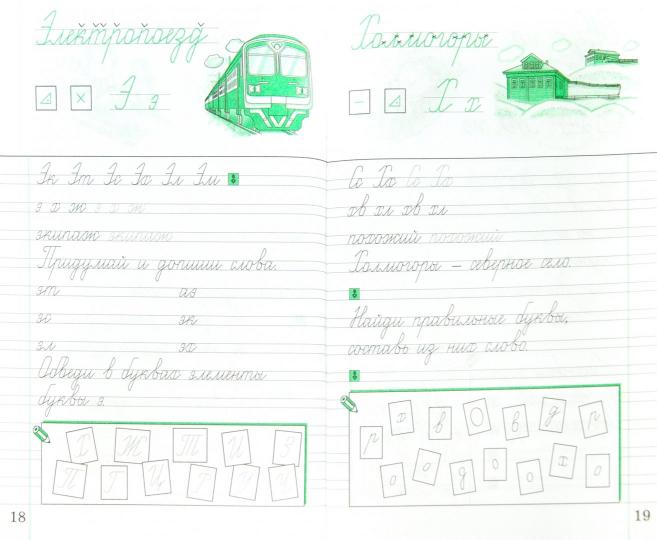 Электропоезд
Э э
Эк Эт Эс Эх Эл Эм
э х ж э х ж
экипаж экипаж
Придумай и допиши слова.
эт
эс эк
эл эх
Обведи в буквах элементы
буквы э.
Х Ж Т И З
П Г Ц Г И И
18
Холмогоры
Х х
Со Хо Со Хо
хв хл хв хл
похожий похожий
Холмогоры – северное село.
Найди правильные буквы,
составь из них слово.
р х в О в д р
о о д о о х о
19